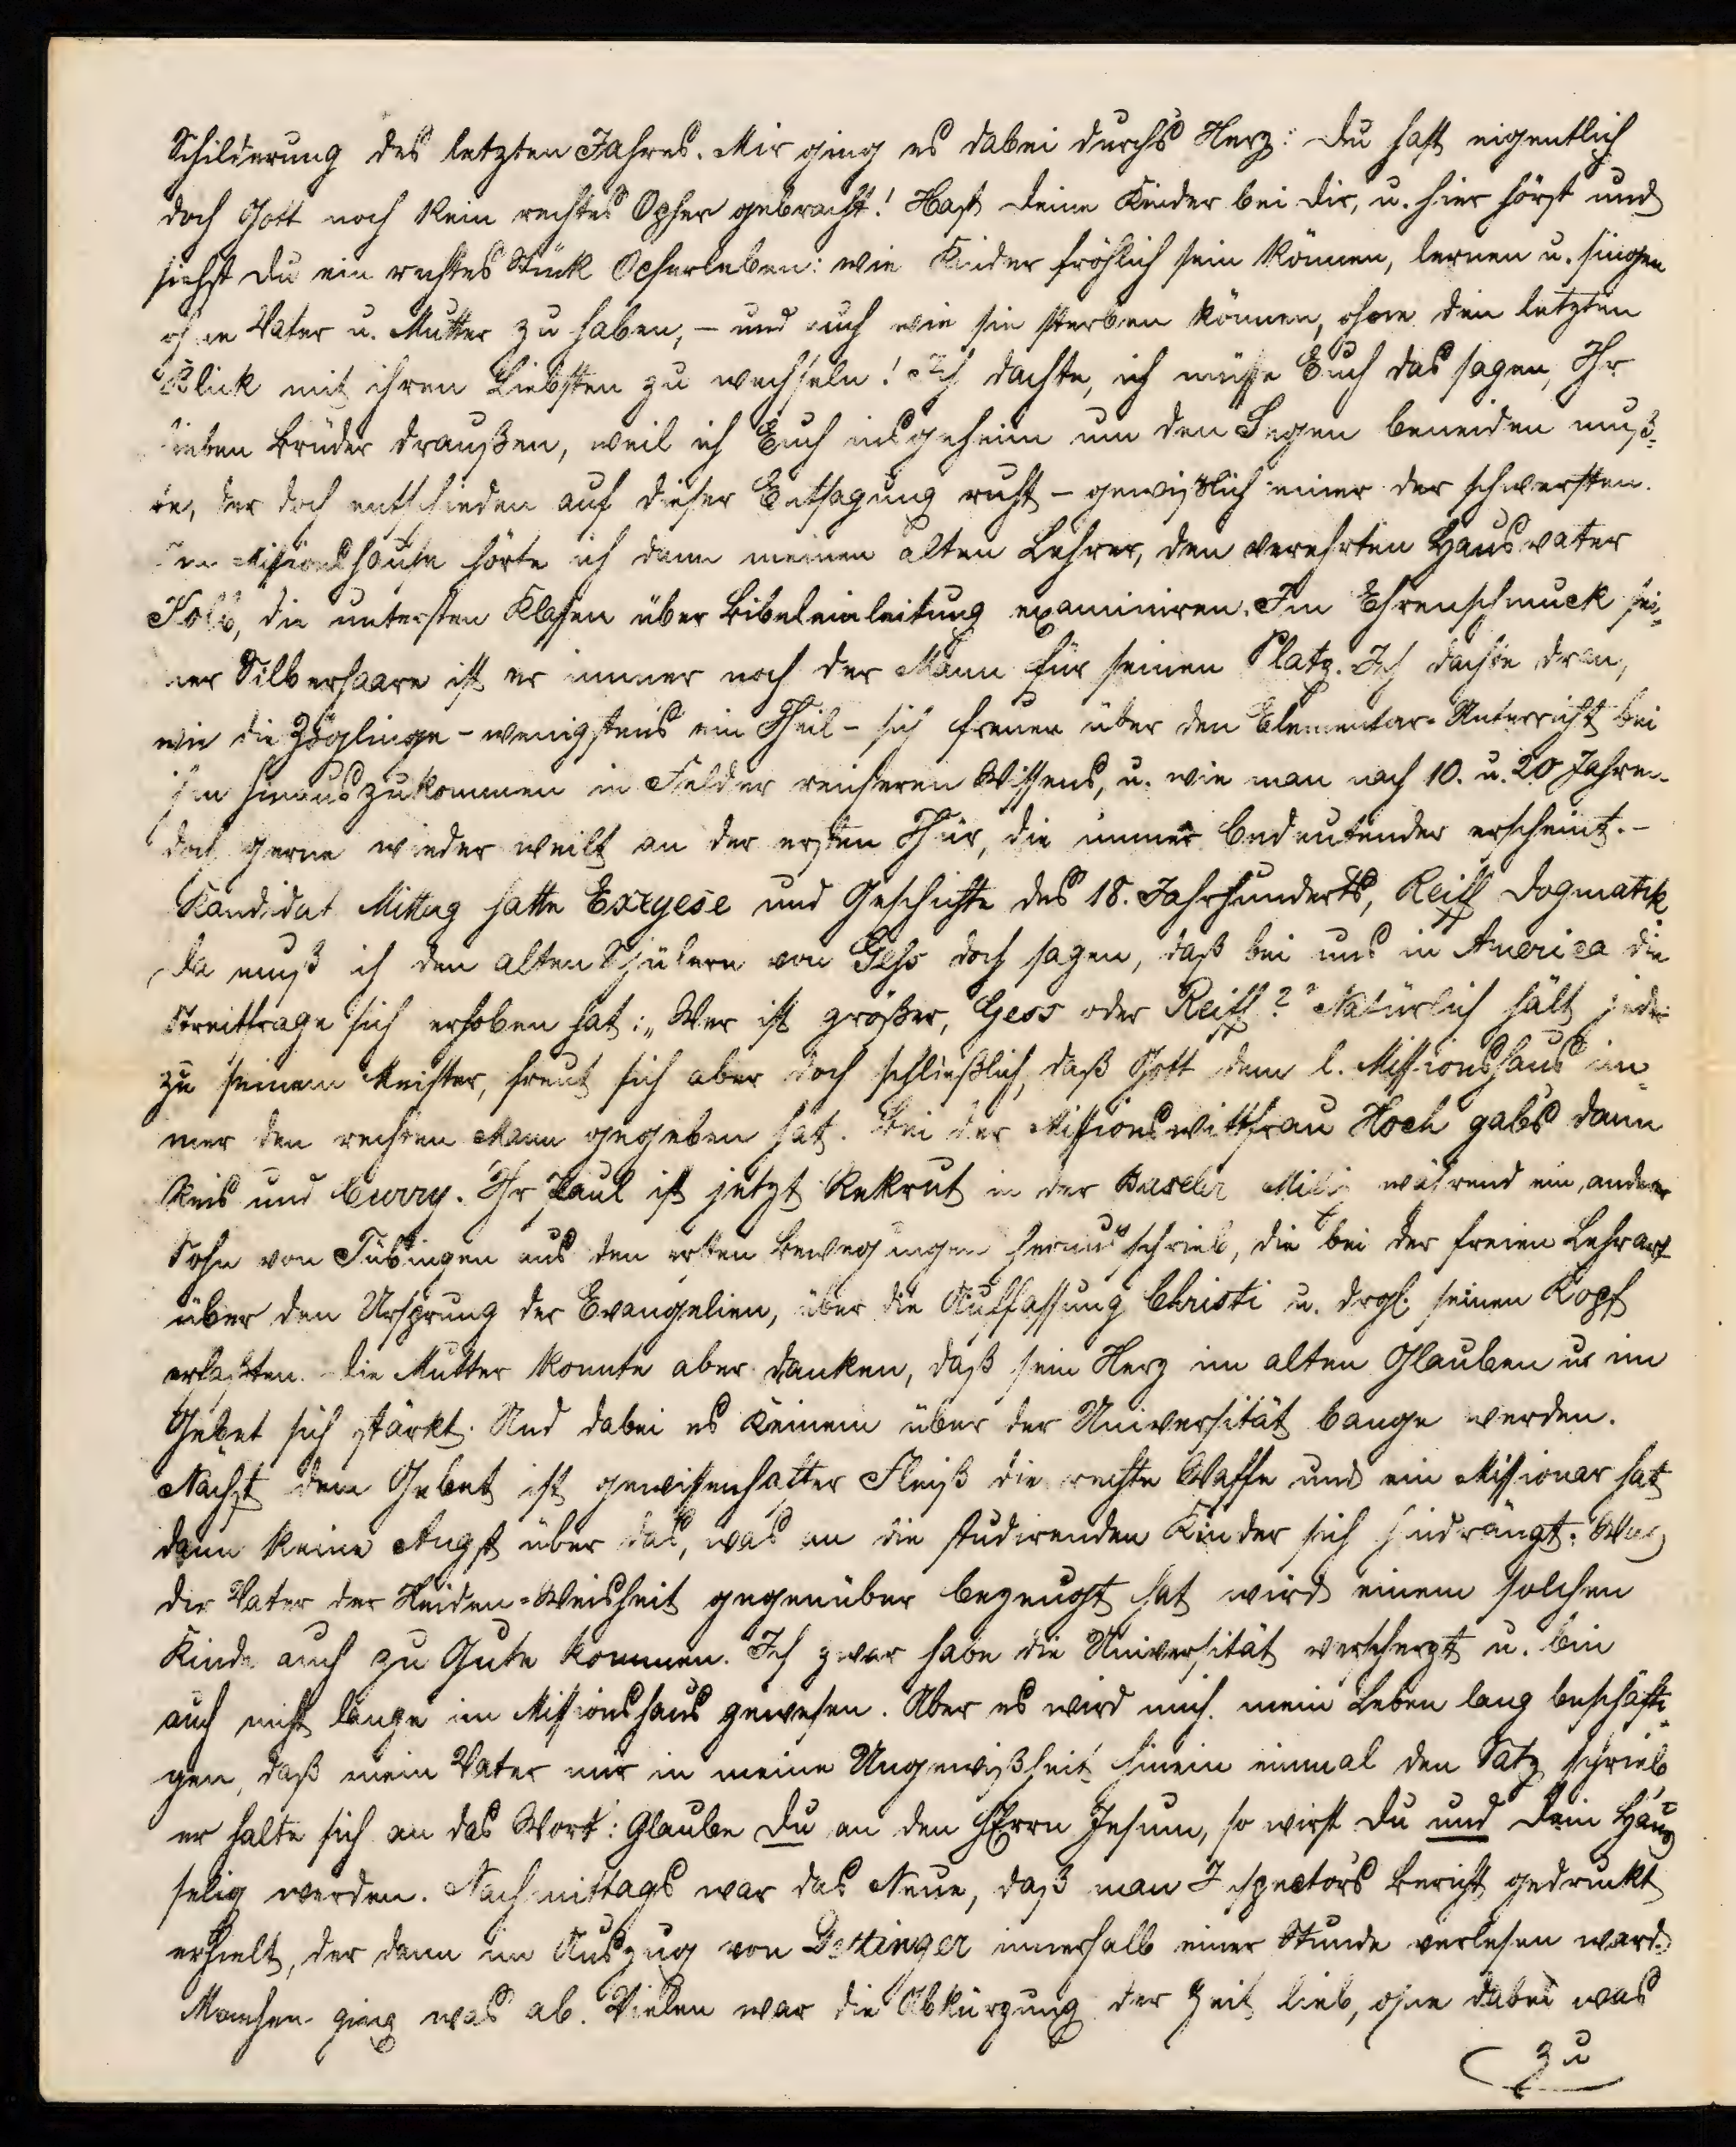 Schilderung des letzten Jahres. Mir ging es dabei durchs Herz: du hast eigentlich
doch Gott noch kein rechtes Opfer gebracht! Hast deine Kinder bei dir, u. hier hörst und
siehst du ein rechtes Stück Opferleben: wie Kinder fröhlich sein können, lernen u. singen
ohne Vater u. Mutter zu haben, – und auch wie sie sterben können, ohne den letzten
Blick mit ihren Liebsten zu wechseln! Ich dachte, ich müsse Euch das sagen, Ihr
lieben Brüder draußen, weil ich Euch insgeheim um den Segen beneiden muß-
te, der doch entschieden auf dieser Entsagung ruht – gewißlich einer der schwersten.
Im Missionshause hörte ich dann meinen alten Lehrer, den verehrten Hausvater
Kolb, die untersten Klassen über Bibeleinleitung examiniren. Im Ehrenschmuck sei-
ner Silberhaare ist er immer noch der Mann für seinen Platz. Ich dachte dran,
wie die Zöglinge – wenigstens ein Theil – sich freuen über den Elementar-Unterricht bei
ihm hinauszukommen in Felder reicheren Wissens, u. wie man nach 10. u. 20 Jahren
doch gerne wieder weilt an der ersten Thür, die immer bedeutender erscheint. –
Kandidat Mittag hatte Exegese und Geschichte des 18. Jahrhunderts, Reiff Dogmatik
Da muß ich den alten Schülern von Gess doch sagen, daß bei uns in America die
Streitfrage sich erhoben hat: „Wer ist größer, Gess oder Reiff?" Natürlich hält jeder
zu seinem Meister, freut sich aber doch schließlich, daß Gott dem l. Missionshaus im-
mer den rechten Mann gegeben hat. Bei der Missionswittfrau Hoch gabs dann
Reis und Curry. Ihr Paul ist jetzt Rekrut in der Basler Miliz während ein anderer
Sohn von Tübingen aus den ersten Bewegungen heraus schrieb, die bei der freien Lehrart
über den Ursprung der Evangelien, über die Auffassung Christi u. drgl. seinen Kopf
erfaßten. Die Mutter konnte aber danken, daß sein Herz im alten Glauben u. im
Gebet sich stärkt. Und dabei es keinem über der Universität bange werden.
Nächst dem Gebet ist gewissenhafter Fleiß die rechte Waffe und ein Missionar hat
dann keine Angst über das, was an die studirenden Kinder sich hindrängt: Was
der Vater der Heiden-Weisheit gegenüber bezeugt hat wird einem solchen
Kinde auch zu Gute kommen. Ich zwar habe die Universität verscherzt u. bin
auch nicht lange im Missionshaus gewesen. Aber es wird mich mein Leben lang beschäfti-
gen, daß mein Vater mir in meine Ungewißheit hinein einmal den Satz schrieb,
er halte sich an das Wort: Glaube du an den HErrn Jesum, so wirst du und dein Haus
selig werden. Nachmittags war das Neue, daß man Inspectors Bericht gedruckt
erhielt, der dann im Auszug von Oettinger innerhalb einer Stunde verlesen ward.
Manchen ging was ab. Vielen war die Abkürzung der Zeit lieb, ohne dabei was
zu